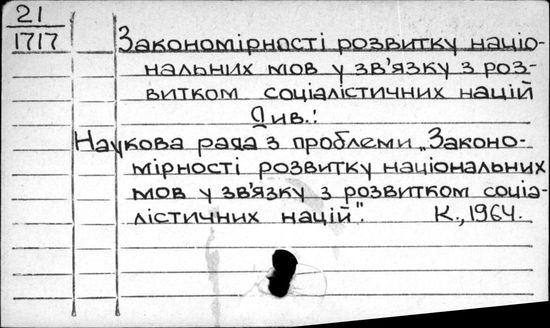 21
1717
Закономірності розвитку націо-
нальних мов у зв'язку з роз-
витком соціалістичних націй
Див.:
Наукова рада з проблеми „Законо-
мірності розвитку національних
мов у зв'язку з розвитком соціа-
лістичних націй". К., 1964.